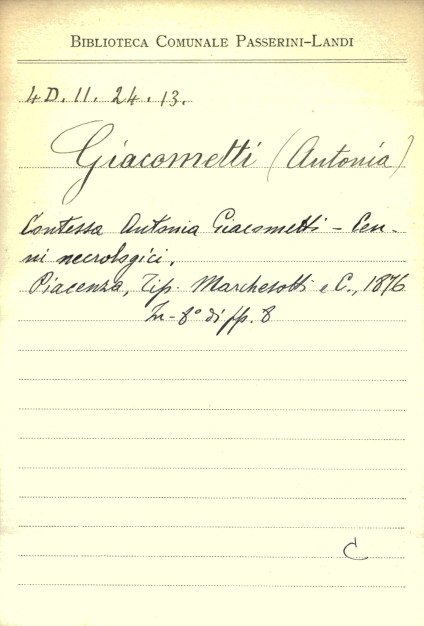 BIBLIOTECA COMUNALE PASSERINI-LANDI
4D.II.24.13.
Giacometti (Antonia)
Contessa Antonia Giacometti - Cen-
ni necrologici.
Piacenza, Tip. Marchesotti e C., 1876
In-8° di pp. 8
C